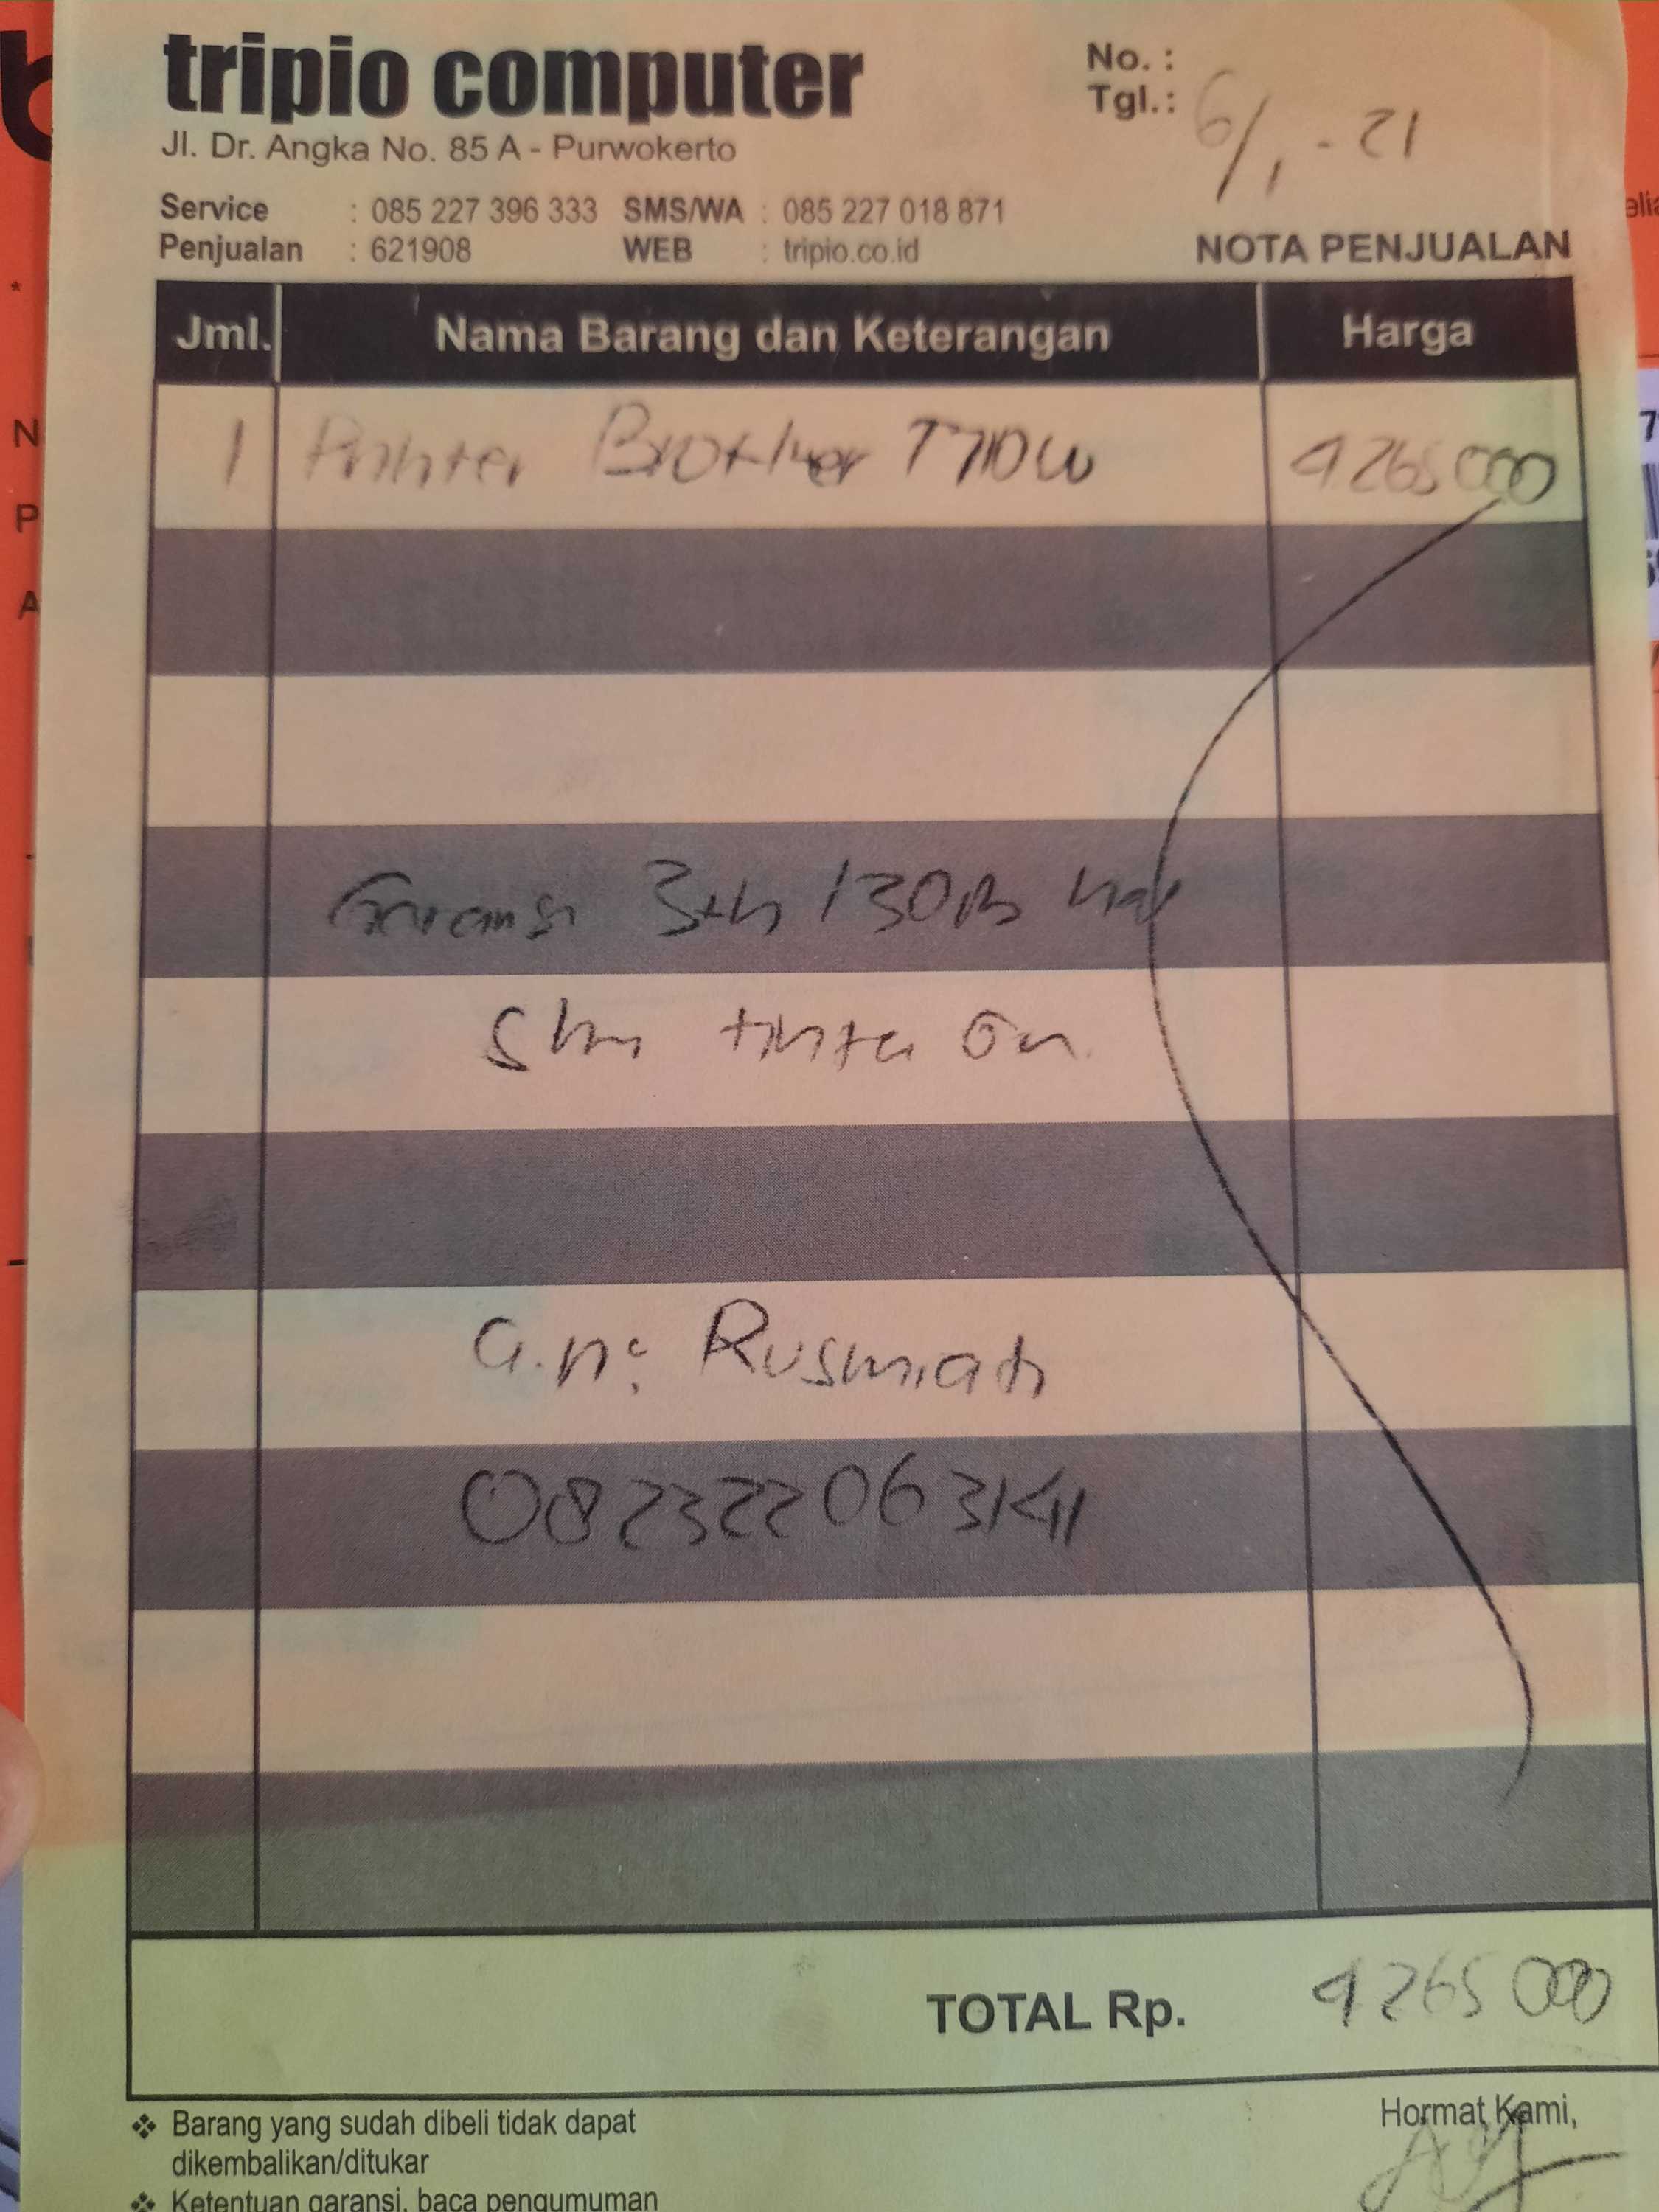 tripio computer
Jl. Dr. Angka No. 85 A - Purwokerto
No. :
Tgl.: 6/1 - 21
Service : 085 227 396 333 SMS/WA : 085 227 018 871
Penjualan : 621908 WEB : tripio.co.id
NOTA PENJUALAN
Jml. Nama Barang dan Keterangan Harga
1 Printer Brother T710W 4265000
Garansi 3th
tinta
a.n: Rusmiati
082322063141
TOTAL Rp. 4265000
Hormat Kami,
❖ Barang yang sudah dibeli tidak dapat
dikembalikan/ditukar
❖ Ketentuan garansi, baca pengumuman